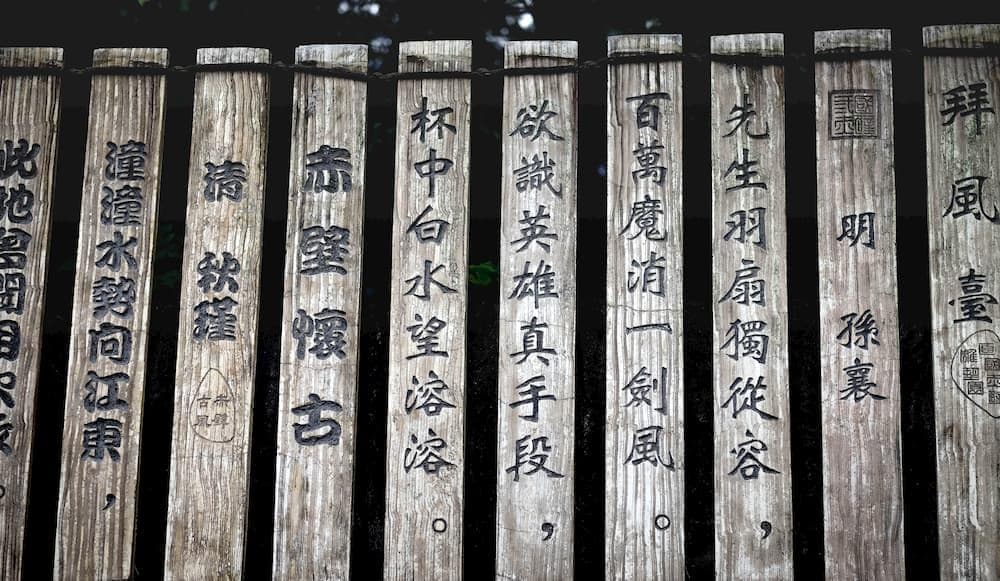 拜風臺
明 孫襄
先生羽扇獨從容，
百萬魔消一劍風。
欲識英雄真手段，
杯中白水望溶溶。
赤壁懷古
清 秋瑾
潼潼水勢向江東，
此地